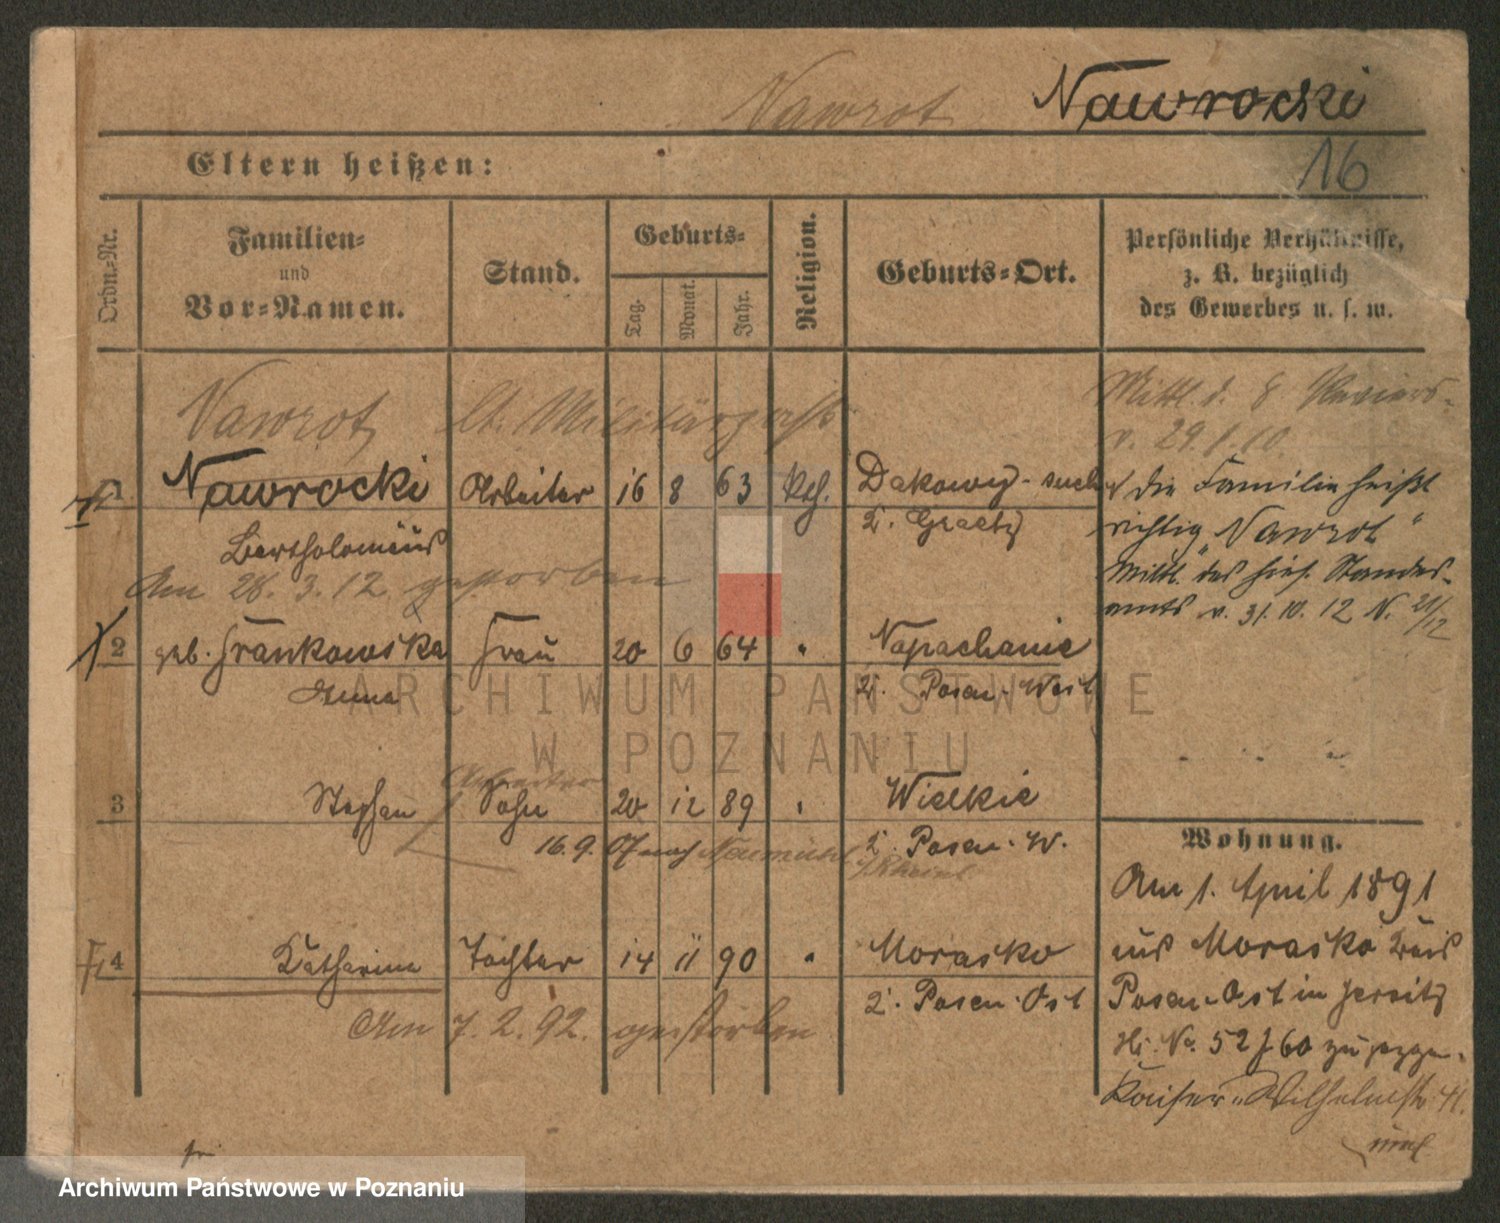 Nawrot Nawrocki
Eltern heißen:
16
Ordn.-Nr.
Familien-
und
Vor-Namen.
Stand.
Geburts-
Tag.
Monat.
Jahr.
Religion.
Geburts-Ort.
Persönliche Verhältnisse,
z. B. bezüglich
des Gewerbes u. s. w.
Nawrot lt. Militärpass
Mittl. d. 8 Reviers-
v. 29.1.10.
1 Nawrocki Arbeiter 16 8 63 kth. Dakowy-suche
Z. Graetz
Bartholomäus
Am 28. 3. 12 gestorben
die Familie heißt
richtig "Nawrot"
Mittl. des hies. Standes-
amts v. 31.10.12 N. 21/12
2 geb. Frankowska Frau 20 6 64 " Napachanie
Anna
Z. Posen-West
Arbeiter
3 Stephan Sohn 20 12 89 " Wielkie
16.9. Off nach Neumühl Z. Posen-W.
/Rheinl
4 Katharina Tochter 14 11 90 " Morasko
Z. Posen-Ost
Am 7. 2. 92. gestorben
Wohnung.
Am 1. April 1891
aus Morasko Kreis
Posen-Ost in Jersitz
No. 52 f 60 zugezogen.
Kaiser-Wilhelmstr. 41.
ARCHIWUM PAŃSTWOWE
W POZNANIU
Archiwum Państwowe w Poznaniu